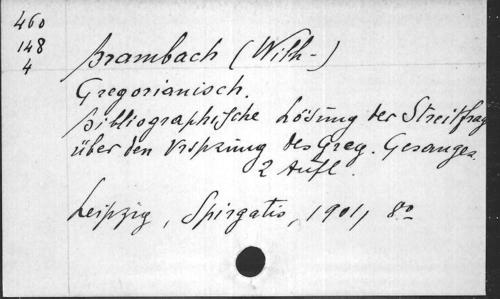 460
148
4
Brambach (Wilh-)
Gregorianisch.
Bibliographische Lösung der Streitfrag
über den Ursprung des Greg. Gesanges
2 Aufl.
Leipzig, Spirgatis, 1901, 8º